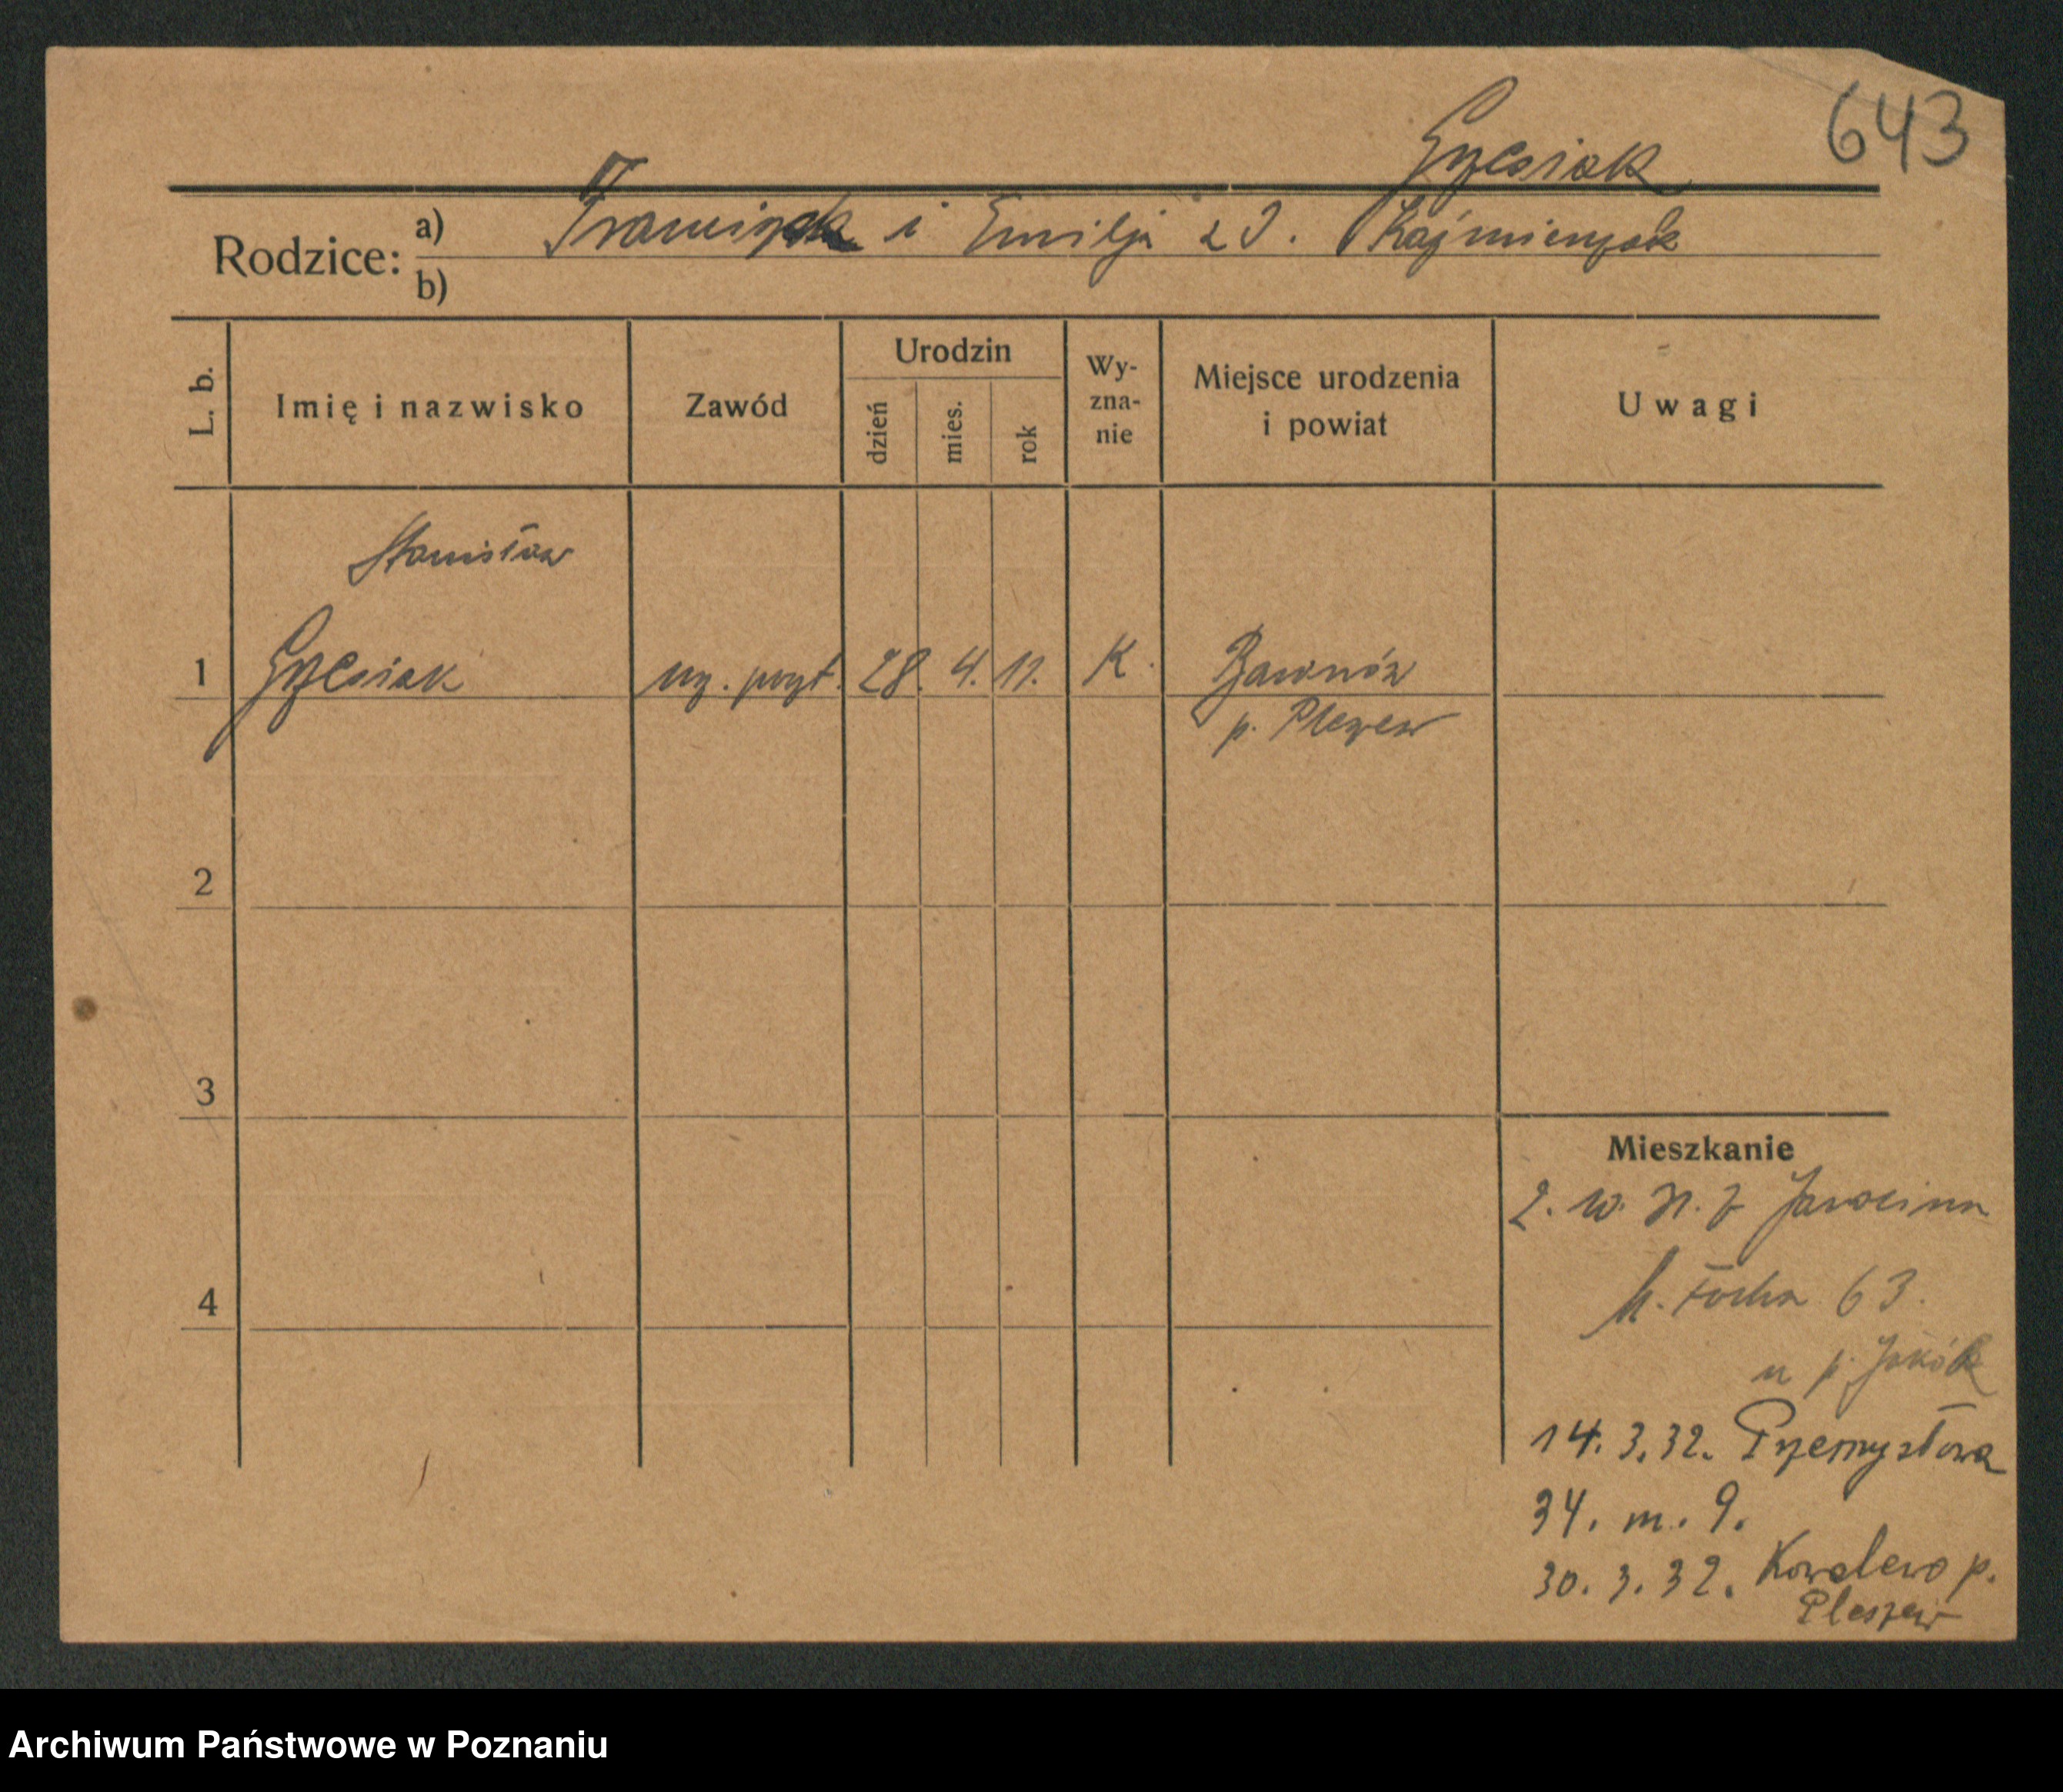 643
Grzesiak
Rodzice: a) Franciszek i Emilja z d. Kaźmierczak
b)
L. b. Imię i nazwisko Zawód Urodzin dzień mies. rok Wyzna-nie Miejsce urodzenia i powiat Uwagi
Stanisław
1 Grzesiak 28. 4. 11. K.
p. Pleszew
2
3
Mieszkanie
Jarocina
4
Focha 63.
u p.
14. 3. 32. Przemysłowa
34. m. 9.
30. 3. 32. Kowalewo p.
Pleszew
Archiwum Państwowe w Poznaniu